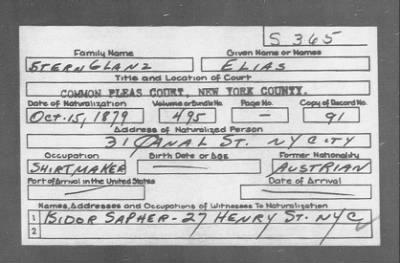 S 365
Family Name Given Name or Names
STERNGLANZ ELIAS
Title and Location of Court
COMMON PLEAS COURT, NEW YORK COUNTY.
Date of Naturalization Volume or Bundle No. Page No. Copy of Record No.
OCT. 15, 1879 495 — 91
Address of Naturalized Person
31 CANAL ST. NY CITY
Occupation Birth Date or Age Former Nationality
SHIRTMAKER AUSTRIAN
Port of Arrival in the United States Date of Arrival
Names, Addresses and Occupations of Witnesses To Naturalization
1 ISIDOR SAPHER - 27 HENRY ST. NYC
2